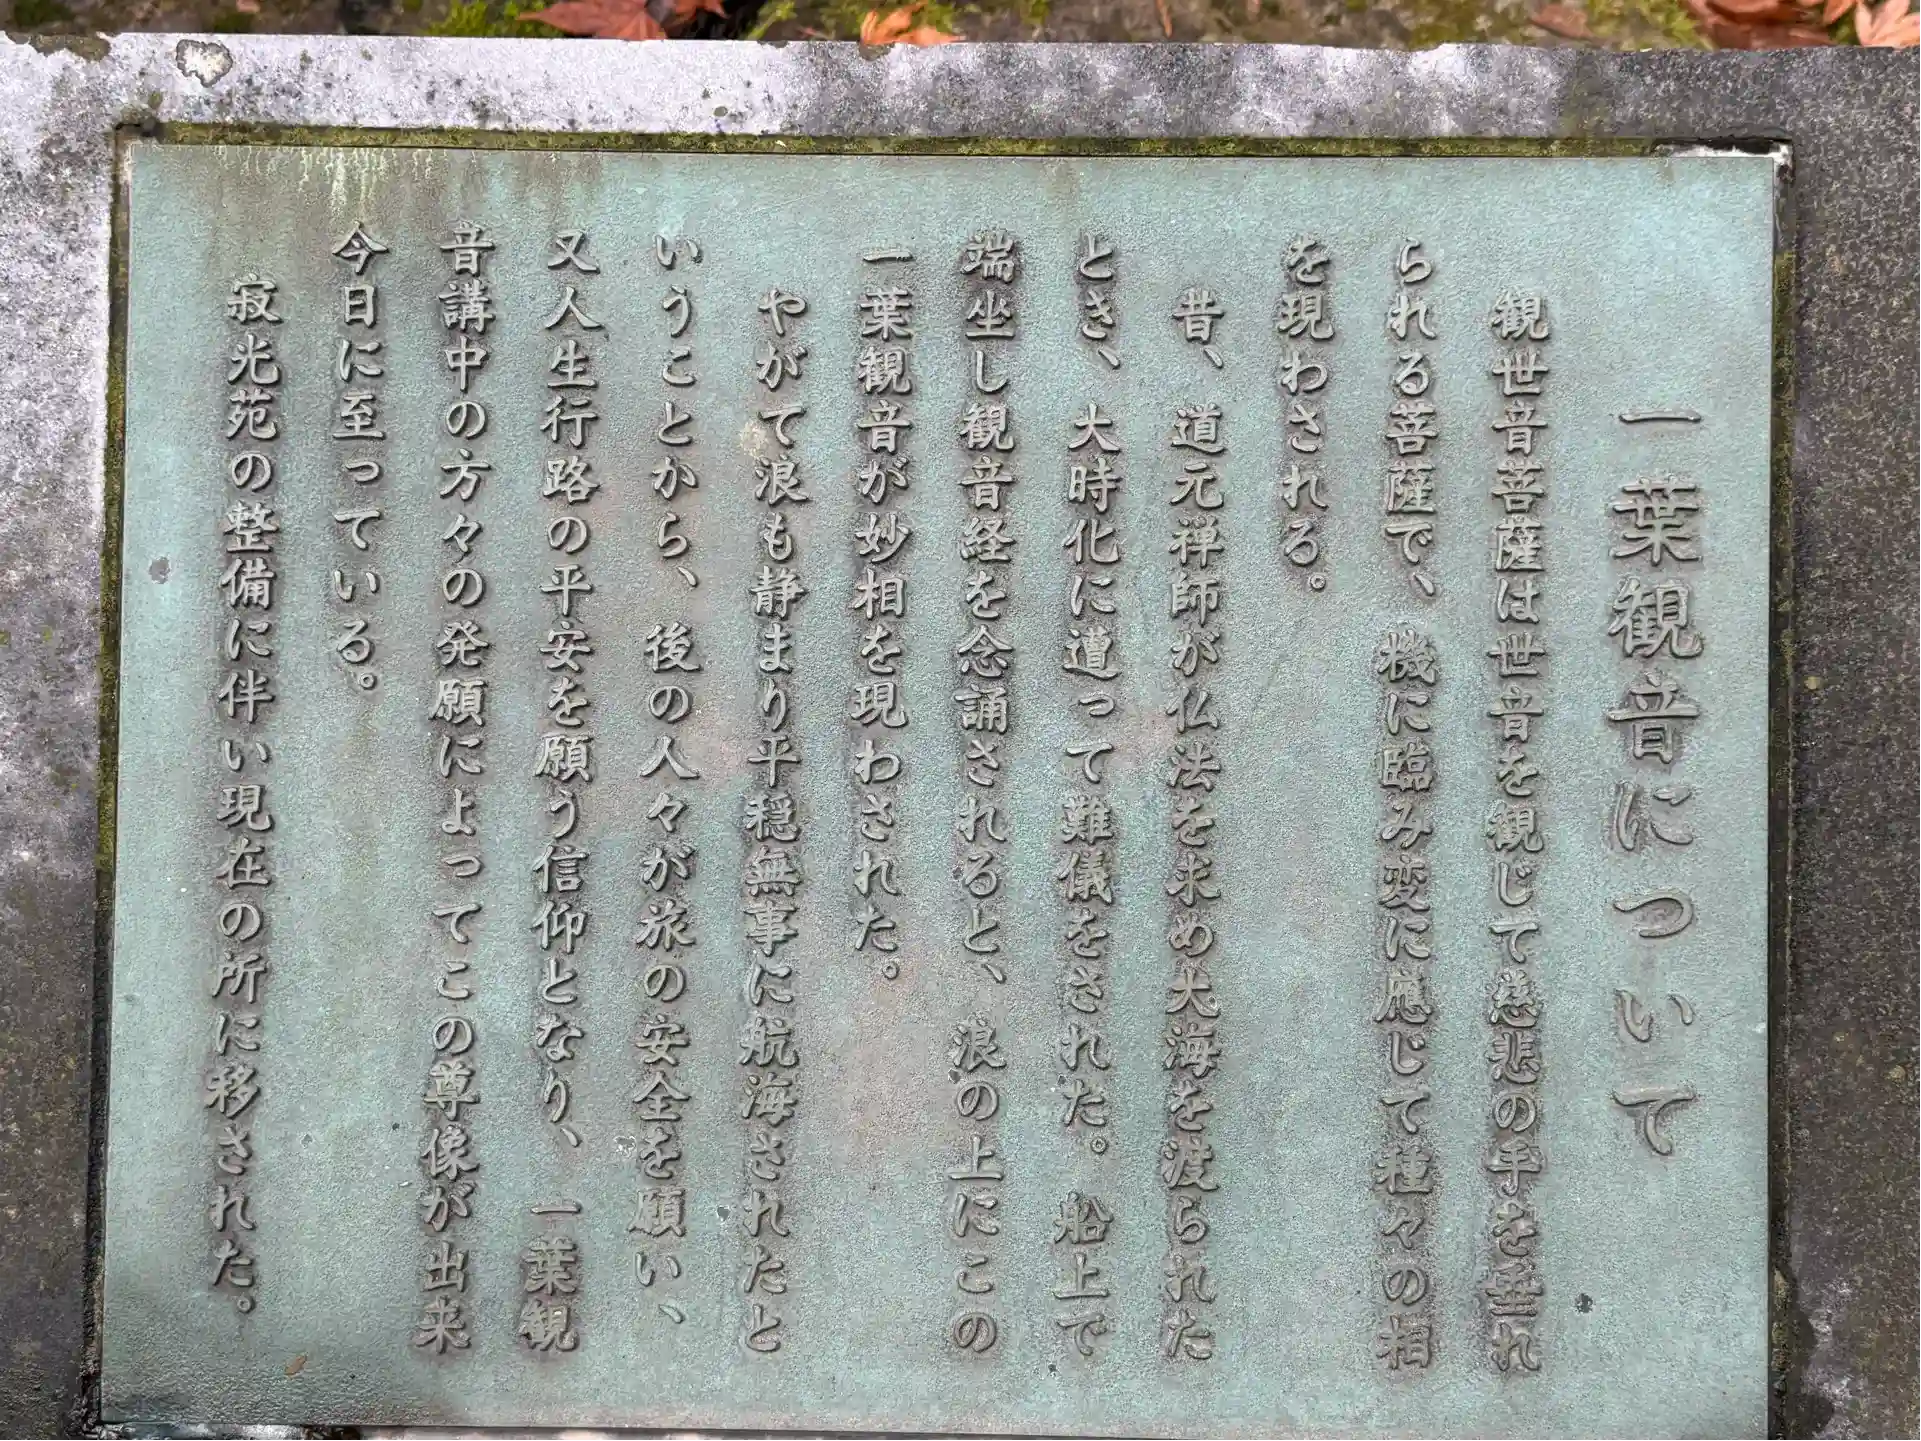 一葉観音について
観世音菩薩は世音を観じて慈悲の手を垂れ
られる菩薩で、機に臨み変に應じて種々の相
を現わされる。
昔、道元禅師が仏法を求め大海を渡られた
とき、大時化に遭って難儀をされた。船上で
端坐し観音経を念誦されると、浪の上にこの
一葉観音が妙相を現わされた。
やがて浪も静まり平穏無事に航海されたと
いうことから、後の人々が旅の安全を願い、
又人生行路の平安を願う信仰となり、一葉観
音講中の方々の発願によってこの尊像が出来
今日に至っている。
寂光苑の整備に伴い現在の所に移された。